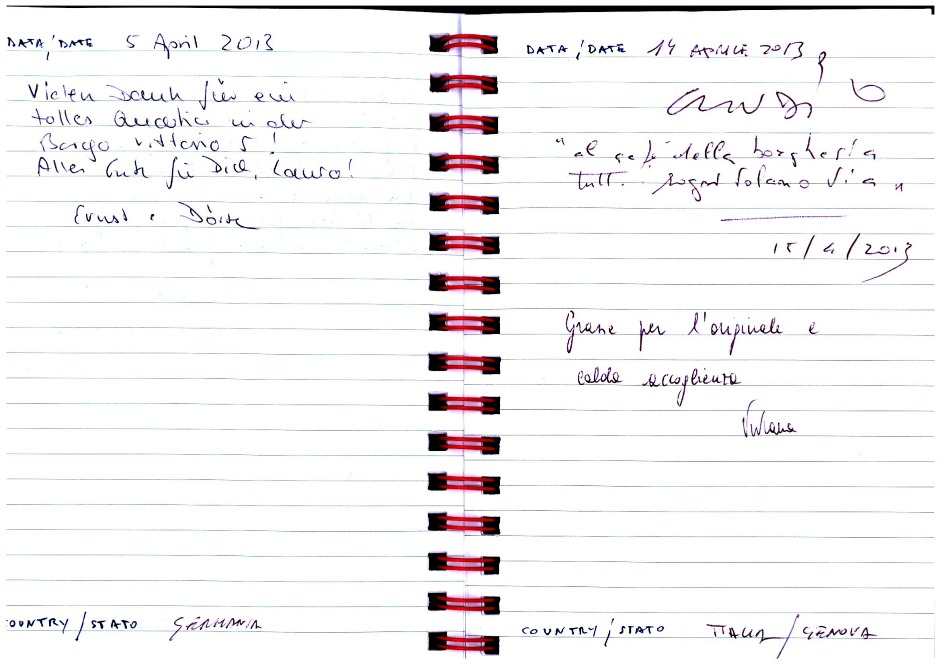 DATA / DATE 5 April 2013
Vielen Dank für ein
tolles Quartier in der
Borgo Vittorio 5!
Alles Gute für Dich, Lauro!
Ernst e
COUNTRY / STATO GERMANIA
DATA / DATE 14 APRILE 2013
"al della borghesia
tutti sognano
15/4/2013
Grazie per l'originale e
calda accoglienza
Viviana
COUNTRY / STATO ITALIA / GENOVA